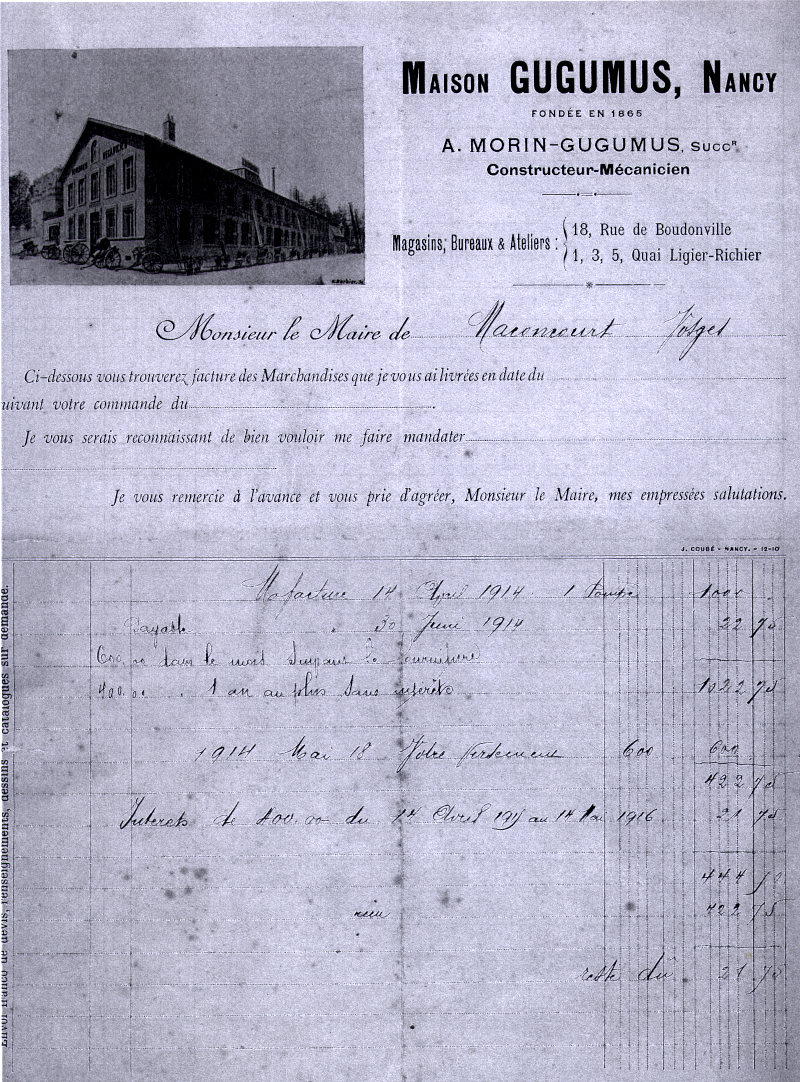 MAISON GUGUMUS, NANCY
FONDÉE EN 1865
A. MORIN-GUGUMUS, SUCCR
Constructeur-Mécanicien
Magasins, Bureaux & Ateliers :
18, Rue de Boudonville
1, 3, 5, Quai Ligier-Richier
Monsieur le Maire de Maconcourt Vosges
Ci-dessous vous trouverez facture des Marchandises que je vous ai livrées en date du
uivant votre commande du
Je vous serais reconnaissant de bien vouloir me faire mandater
Je vous remercie à l'avance et vous prie d'agréer, Monsieur le Maire, mes empressées salutations.
J. COUBÉ - NANCY. - 12-10
Ma facture 14 Avril 1914 1 Pompe 1000
Payable " 30 Juin 1914 22 75
600.00 dans le mois suivant la fourniture
400.00 " 1 an au plus sans intérêts 1022 75
1914 Mai 18 Votre versement 600 600
422 75
Interets de 400.00 du 14 Avril 1915 au 14 Mai 1916 21 75
444 50
reçu 422 75
reste dû 21 75
Envoi franco de devis, renseignements, dessins et catalogues sur demande.